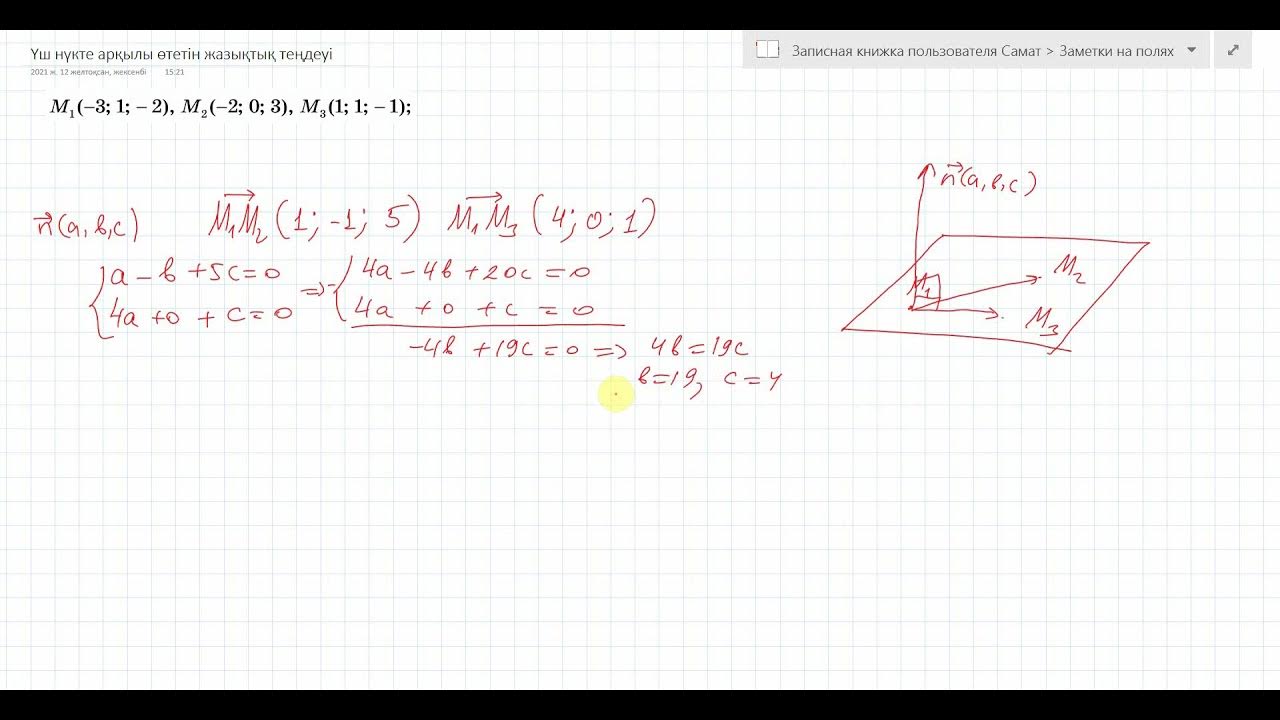 Үш нүкте арқылы өтетін жазықтық теңдеуі
2021 ж. 12 желтоқсан, жексенбі 15:21
Записная книжка пользователя Самат > Заметки на полях
M₁(−3; 1; − 2), M₂(−2; 0; 3), M₃(1; 1; − 1);
n⃗(a,в,c) M₁M₂(1; -1; 5) M₁M₃(4; 0; 1)
{a − в + 5c = 0 ⇒ − {4a − 4в + 20c = 0
4a + 0 + c = 0 4a + 0 + c = 0
-4в + 19c = 0 ⇒ 4в = 19c
в = 19, c = 4
n⃗(a,в,c)
M₁ M₂
M₃